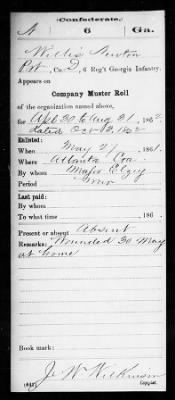 Confederate.
N 6 Ga.
Willis Newton
Pvt, Co. D, 6 Reg't Georgia Infantry.
Appears on
Company Muster Roll
of the organization named above,
for Apl 30 to Aug 31, 1862.
dated Oct 13, 1862
Enlisted:
When May 27, 1861.
Where Atlanta Ga.
By whom Major
Period War
Last paid:
By whom
To what time , 186 .
Present or absent Absent
Remarks: Wounded 30 May
at home
Book mark:
(642) J. W. Wilkinson
Copyist.